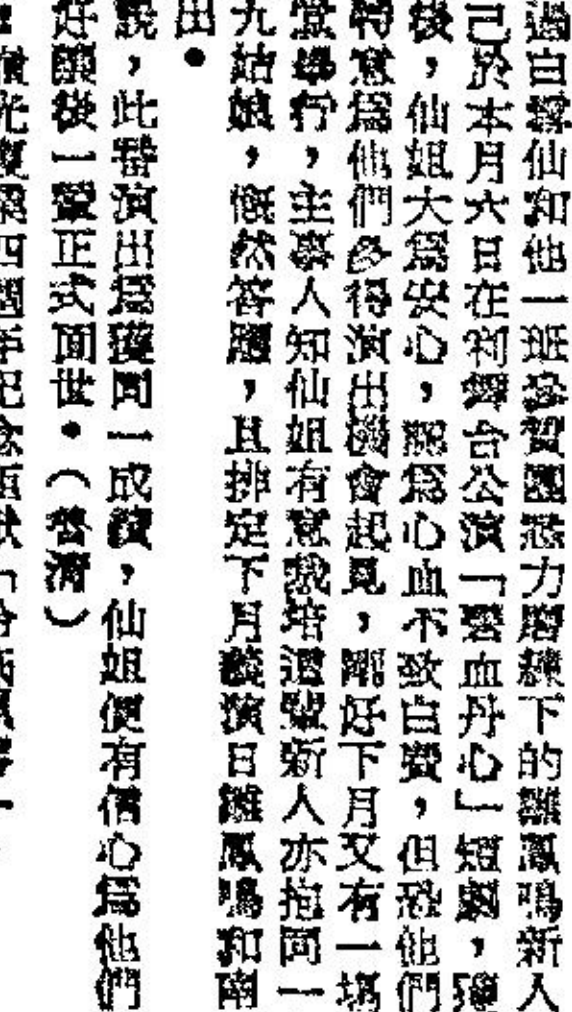 過白雪仙和他一班參贊團悉力磨練下的雛鳳鳴新人
己於本月六日在利舞台公演「碧血丹心」短劇，獲
後，仙姐大為安心，認為心血不致白費，但恐他們
特意為他們多得演出機會起見，剛好下月又有一場
堂舉行，主事人知仙姐有意栽培這輩新人亦抱同一
九姑娘，慨然答應，且排定下月義演日雛鳳鳴和南
出●
說，此番演出爲獲同一成績，仙姐便有信心爲他們
好後一輩正式面世●（）